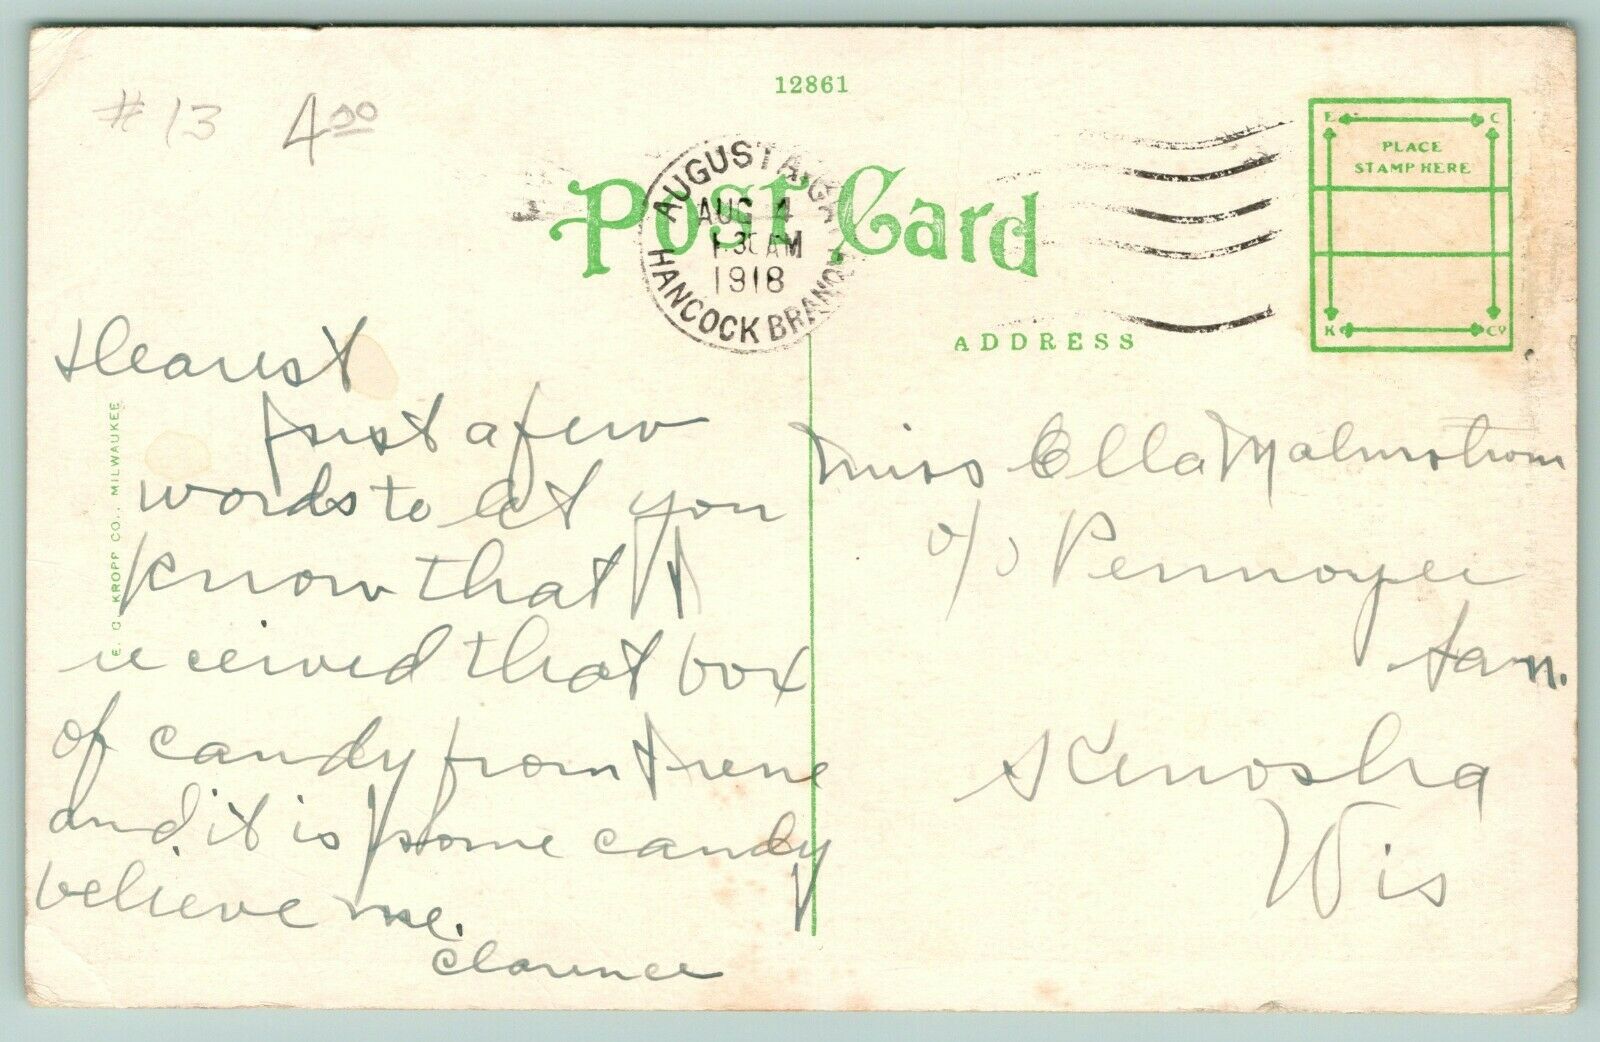 # 13 4.00
12861
POST Card
AUGUSTA, GA.
AUG 4
1:30 AM
1918
HANCOCK BRANCH
E C
PLACE
STAMP HERE
K Co
ADDRESS
E. C. KROPP CO., MILWAUKEE
Dearest
Just a few
words to let you
know that I
received that box
of candy from Irene
and it is some candy
believe me.
Clarence
Miss Ella Malmstrom
c/o Pennoyer
San.
Kenosha
Wis